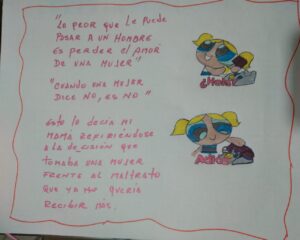 "Lo peor que le puede
pasar a un hombre
es perder el amor
de una mujer"
"Cuando una mujer
dice no, es no"
Esto lo decía mi
mama refiriéndose
a la decisión que
tomaba una mujer
frente al maltrato
que ya no quería
recibir más.
¿Hola?
Adiós